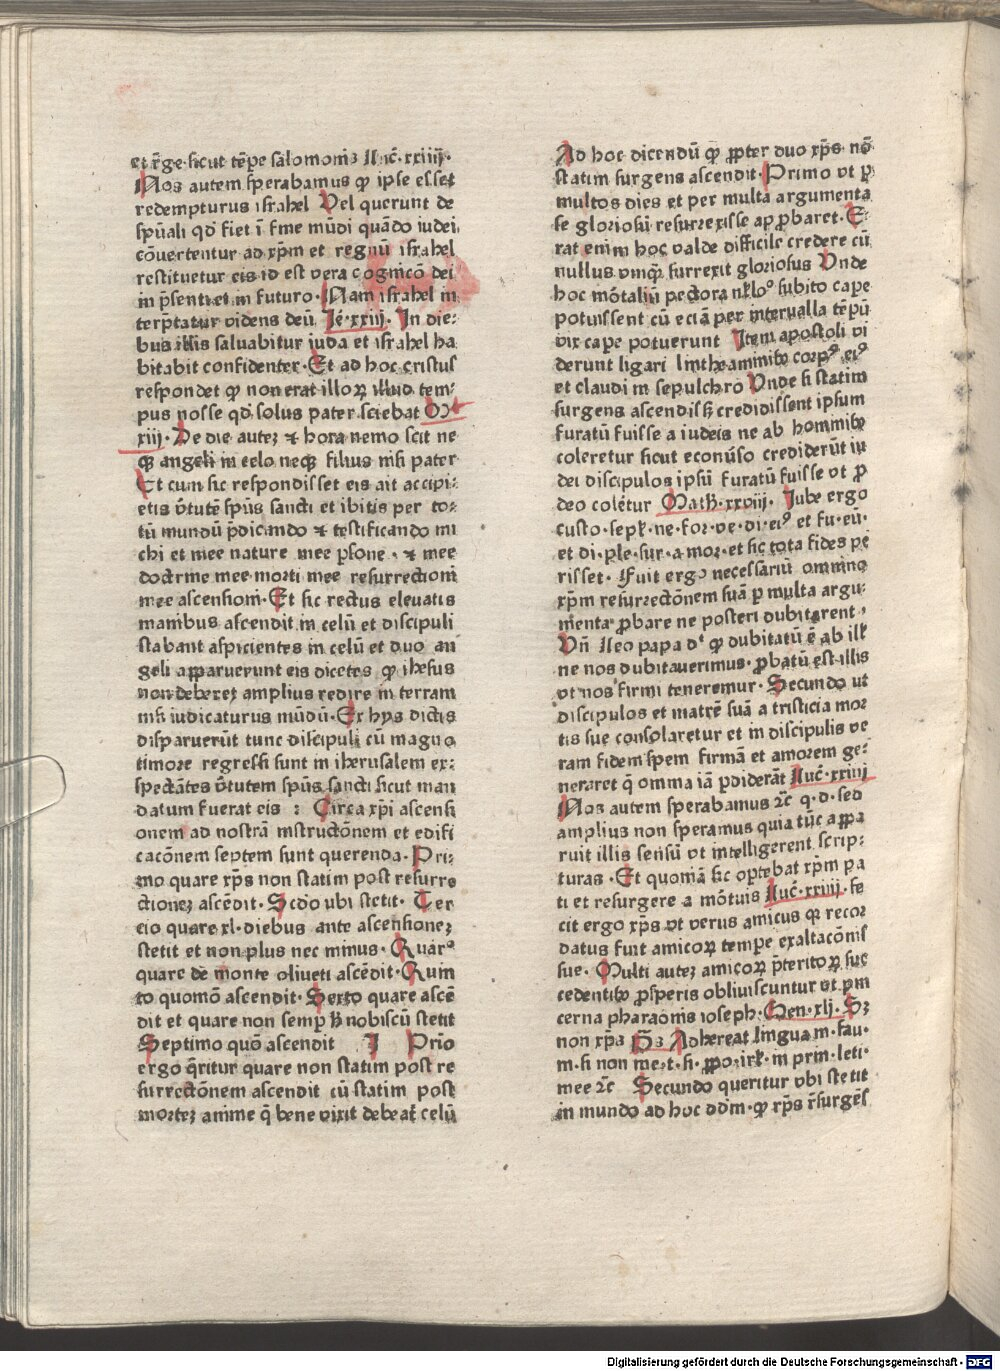 et r̄ge·sicut tēpe salomonis Luc̄·xxiiij·
Nos autem sperabamus ꝙ ipse esset
redempturus israhel Vel querunt de
spūali qd̓ fiet ī fine mūdi quādo iudei
cōuertentur ad xp̄m et regnū israhel
restituetur eis id est vera cognicō dei
in p̄senti et in futuro·Nam israhel in
terp̄tatur videns deū Ie·xxiij· In die⸗
bus illis saluabitur iuda et israhel ha
bitabit confidenter·Et ad hoc cristus
respondet ꝙ non erat illoꝝ illud tem⸗
pus nosse qd̓ solus pater sciebat Mͭ
xiij·De die auteꝫ ⁊ hora nemo scit ne
qꝫ angeli in celo neqꝫ filius nisi pater
Et cum sic respondisset eis ait accipi⸗
etis v̓tutē spūs sancti et ibitis per to⸗
tū mundū p̄dicando ⁊ testificando mi
chi et mee nature mee ꝑsone · ⁊ mee
doctrine mee morti mee resurrectioni
mee ascensioni·Et sic rectus eleuatis
manibus ascendit in celū et discipuli
stabant aspicientes in celū et duo an
geli apparuerunt eis dicētes ꝙ ihesus
non deberet amplius redire in terram
nisi iudicaturus mūdū·Ex hys dictis
disparuerūt tunc discipuli cū magno
timore regressi sunt in iherusalem ex⸗
spectātes v̓tutem spūs sancti sicut man
datum fuerat eis : Circa xp̄i ascensi
onem ad nostrā instructōnem et edifi
cacōnem septem sunt querenda·Pri⸗
mo quare xp̄s non statim post resurre
ctioneꝫ ascēdit·Scd̓o ubi stetit·Ter
cio quare xl·diebus ante ascensioneꝫ
stetit et non plus nec minus·Quarͦ
quare de monte oliueti ascēdit·Quin
to quomō ascendit·Sexto quare ascē
dit et quare non semꝑ h̓ nobiscū stetit
Septimo quō ascendit I Prīo
ergo q̄ritur quare non statim post re
surrectōnem ascendit cū statim post
morteꝫ anime q̄ bene vixit debeat̓ celū
Ad hoc dicendū ꝙ ꝓpter duo xp̄s nō
statim surgens ascendit·Primo vt ꝑ
multos dies et per multa argumenta
se gloriosū resurrexisse ap ꝓbaret·E⸗
rat enim hoc valde difficile credere cū
nullus vnqꝫ surrexit gloriosus Vnde
hoc mōtaliū pectora nlloͦ subito cape
potuissent cū eciā per interualla tēpū
vix cape potuerunt Item apostoli vi
derunt ligari lintheaminibꝫ corpꝰ eiꝰ
et claudi in sepulchro Vnde si statim
surgens ascendisꝫ credidissent ipsum
furatū fuisse a iudeis ne ab hominibꝫ
coleretur sicut econūso crediderūt iu
dei discipulos ipsū furatū fuisse vt ꝓ
deo colētur Math·xxviij· Iube ergo
custo·sepl·ne·for·ve·di·eiꝰ et fu·eū·
et di·ple·sur·a mor·et sic tota fides pe
risset· Fuit ergo necessariū omnino
xp̄m resurrectōnem suā ꝑ multa argu⸗
menta ꝓbare ne posteri dubitarent·
Vn̄ Leo papa dͭ ꝙ dubitatū ē ab ill̓
ne nos dubitauerimus·ꝓbatū est illis
vt nos firmi teneremur·Secundo ut
discipulos et matrē suā a tristicia mor
tis sue consolaretur et in discipulis ve
ram fidem spem firmā et amorem ge⸗
neraret q̄ omnia iā ꝑdiderāt Luc̄·xxiiij
Nos autem sperabamus ⁊c̄ q·d·sed
amplius non speramus quia tūc appa
ruit illis sensū vt intelligerent scrip⸗
turas ·Et quoniā sic oꝑtebat xp̄m pa
ti et resurgere a mōtuis Luc̄·xxiiij·fe
cit ergo xp̄s vt verus amicus qꝫ recor
datus fuit amicoꝝ tempe exaltacōnis
sue·Multi auteꝫ amicoꝝ p̄teritoꝝ suc
cedentibꝫ ꝓsperis obliuiscuntur vt pin
cerna pharaonis ioseph·Gen·xlj·Sꝫ
non xp̄s Psꝫ Adhereat lingua m·fau·
m·si non me·t·si·ꝓpo·irl̓·in prin·leti·
mee ⁊c̄ Secundo queritur vbi stetit
in mundo ad hoc dd̓m·ꝙ xp̄s r̓surgēs
Digitalisierung gefördert durch die Deutsche Forschungsgemeinschaft - DFG